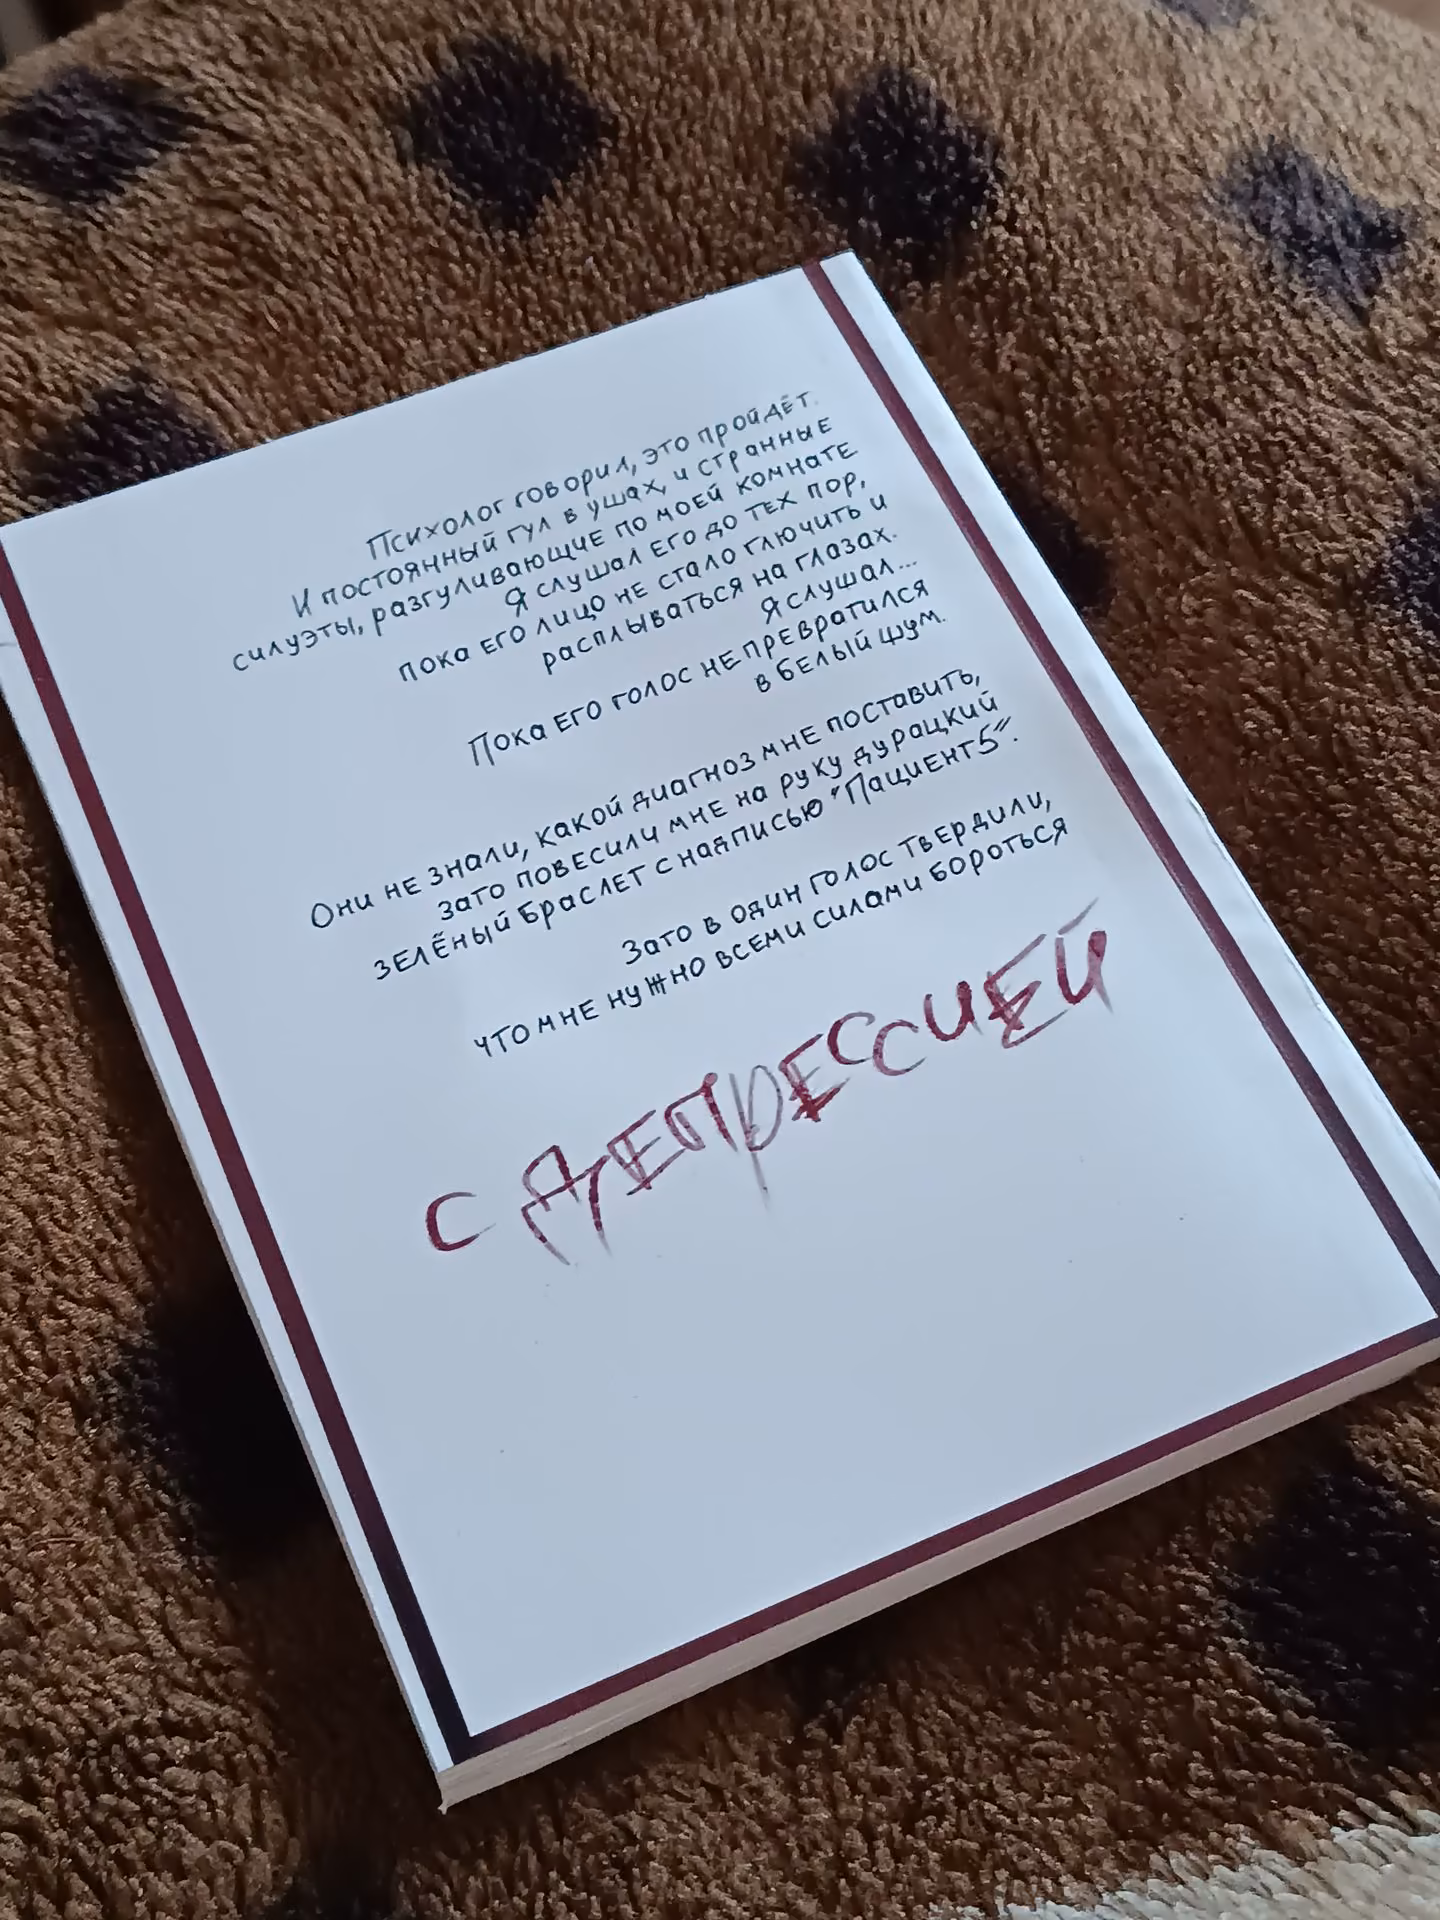 Психолог говорил, это пройдёт.
И постоянный гул в ушах, и странные
силуэты, разгуливающие по моей комнате
Я слушал его до тех пор,
пока его лицо не стало глючить и
расплываться на глазах.
Я слушал...
Пока его голос не превратился
в белый шум.
Они не знали, какой диагноз мне поставить,
зато повесили мне на руку дурацкий
зелёный браслет с надписью "Пациент 5".
Зато в один голос твердили,
что мне нужно всеми силами бороться
с ДЕПРЕССИЕЙ